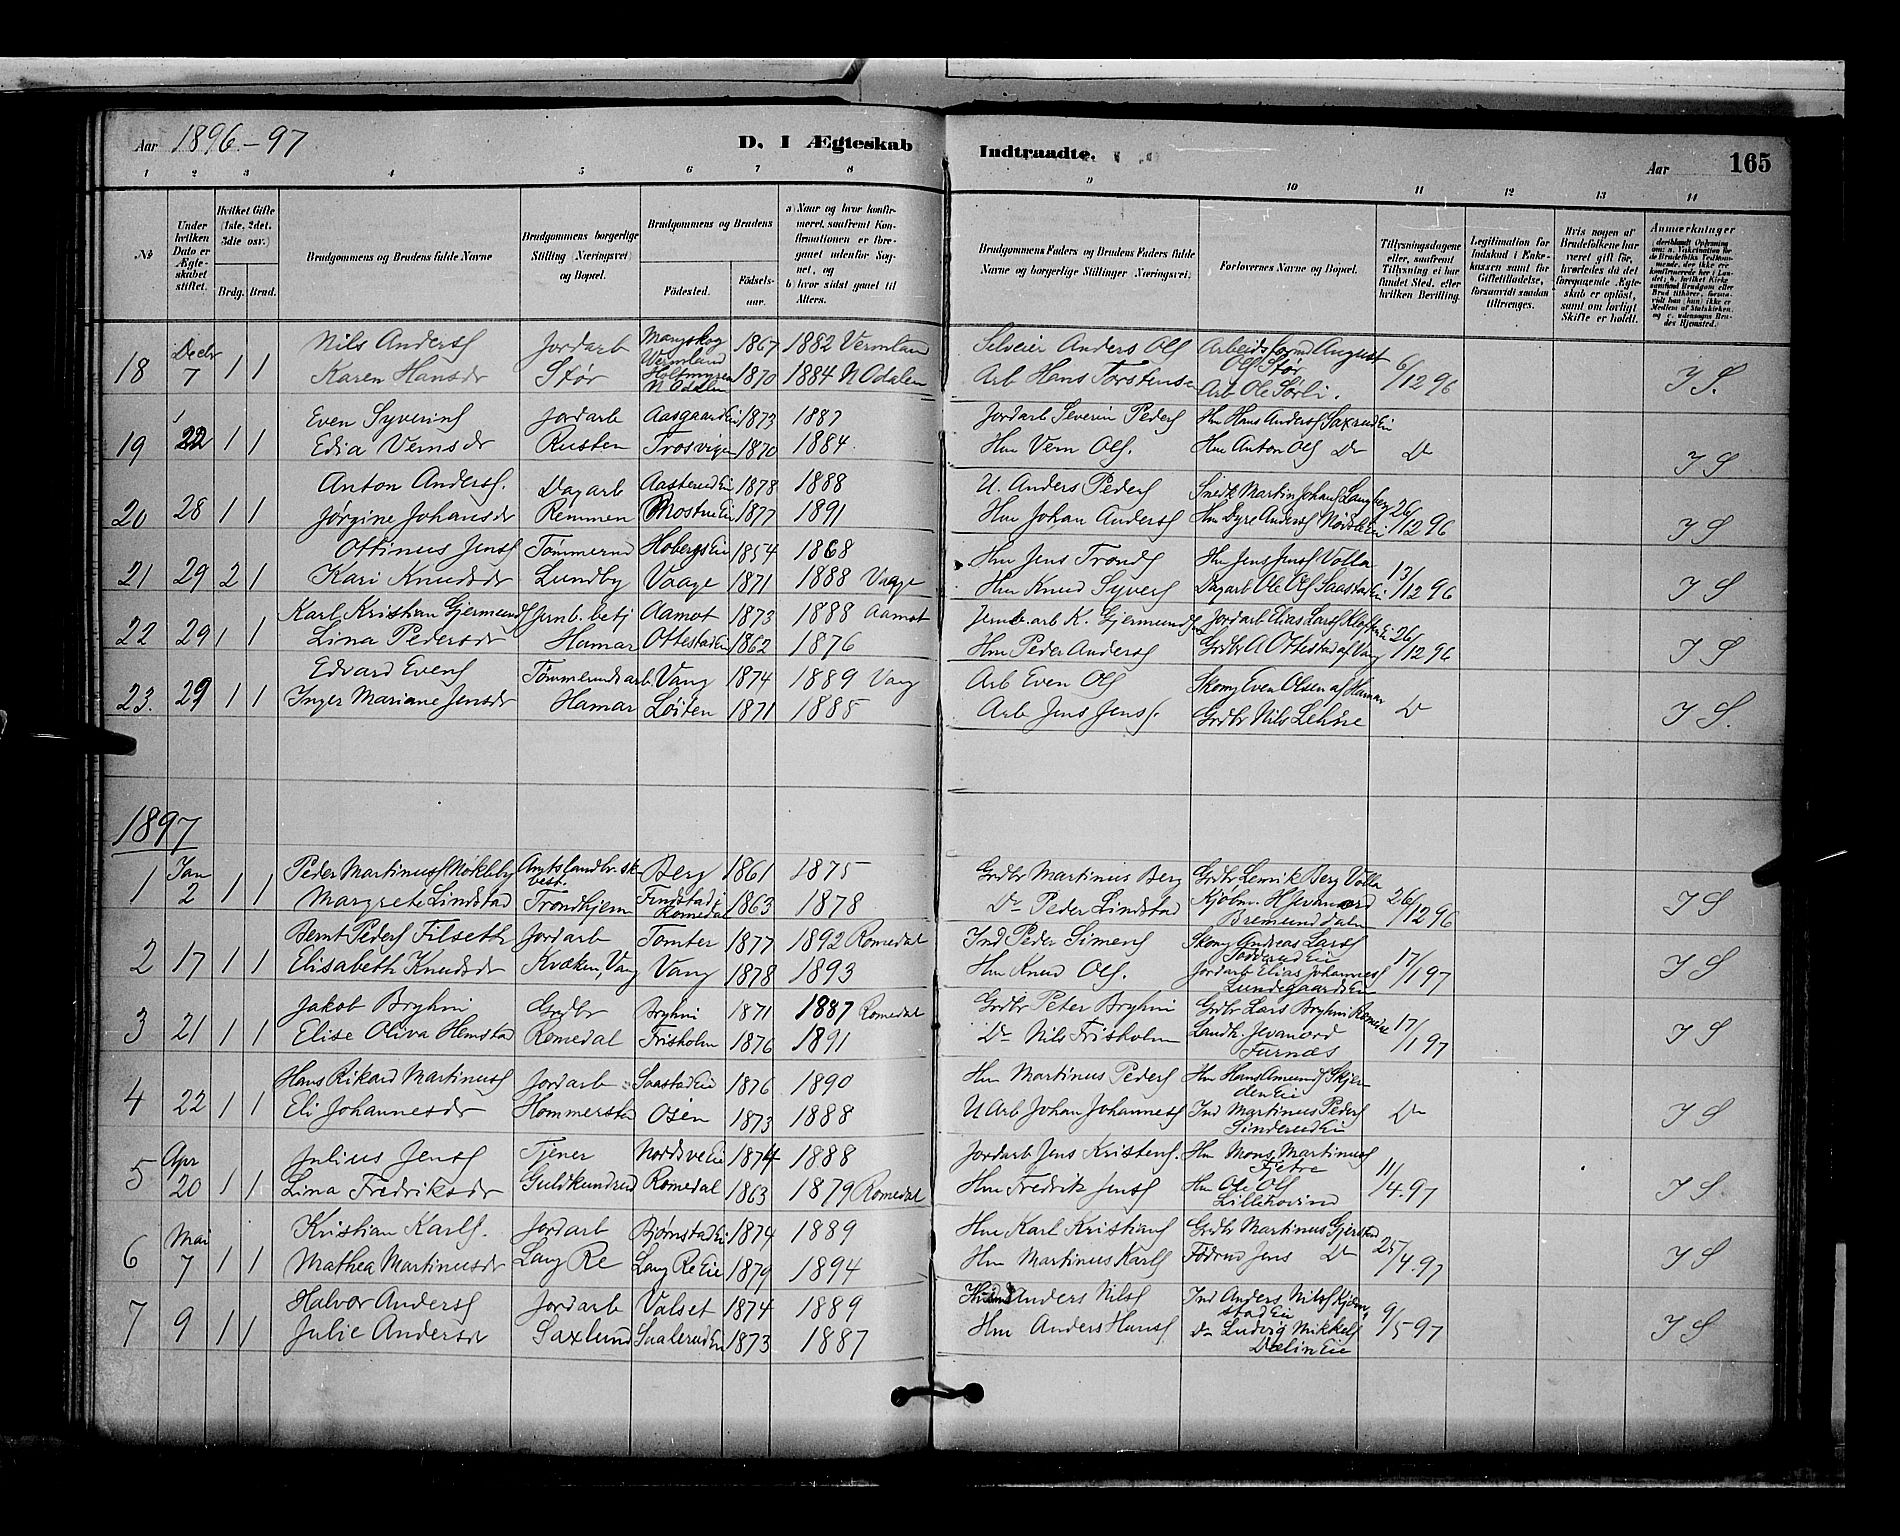 Aar 1896-97 D. I Ægteskab Indtraadte. Aar 165
1 2 3 4 5 6 7 8 9 10 11 12 13 14
№ Under hvilken Dato er Ægteskabet stiftet. Hvilket Gifte (1ste, 2det, 3die osv.) Brdg. Brud. Brudgommens og Brudens fulde Navne Brudgommens borgerlige Stilling (Næringsvei) og Bopæl. Brudgommens og Brudens Fødested. Fødselsaar. a) Naar og hvor konfirmeret, saafremt Konfirmationen er foregaaet udenfor Sognet, og b) hvor sidst gaaet til Alters. Brudgommens Faders og Brudens Faders fulde Navne og borgerlige Stillinger (Næringsvei) Forlovernes Navne og Bopæl. Tillysningsdagene eller, saafremt Tillysning ei har fundet Sted, efter hvilken Bevilling. Legitimation for Indskud i Enkekassen samt for Giftetilladelse, forsaavidt saadan tiltrænges. Hvis nogen af Brudefolkene har været gift før, hvorledes da det foregaaende Ægteskab er opløst, samt om lovligt Skifte er holdt. Anmerkninger
Decbr Nils Anders Jordarb Mangskog 1867 1882 Vermland Selveier Anders Ols Arbeidsformd August
18 7 1 1 Karen Hansdr Stør Vermland Holtmyren N Odalen 1870 1884 N Odalen Arb Hans Torstens Ols Stør Arb Ole Sørli. 6/12 96 I S.
Even Syverins Jordarb Aasgaard Ei 1873 1887 Jordarb Severin Peders Hm Hans Anders Saxrud Ei
19 22 1 1 Edia Vernsdr Rusten Trosvigen 1870 1884. Hm Vern Ols. Hm Anton Ols Do Do I S
Anton Anders. Dagarb Aasterud Ei 1878 1888 U. Anders Peders Snedk Martin Johans Langberg
20 28 1 1 Jørgine Johansdr Remmen Mostue Ei 1877 1891 Hm Johan Anders Hm Dyre Anders Nordsve Ei 26/12 96 I S
Ottinus Jens Tømmermd Hobergs Eie 1854 1868 Hm Jens Tronds Hm Jens Jens Volla
21 29 2 1 Kari Knudsdr Lundby Vaage 1871 1888 Vaage Hm Knud Syvers Dagarb Ole Ols Saastad Ei 13/12 96 I S
Karl Kristian Gjermunds Jernb. betj Aamot 1873 1888 Aamot Jernb. arb K. Gjermunds Jordarb Elias Lars Kloften Ei
22 29 1 1 Lina Pedersdr Hamar Ottestad Ei 1862 1876 Hm Peder Anders Grdbr A Ottestad af Vang 26/12 96 I S
Edvard Evens Tømmermds arb. Vang 1874 1889 Vang Arb Even Ols Skomg Even Olsen af Hamar
23. 29 1 1 Inger Mariane Jensdr Hamar Løiten 1871 1885 Arb Jens Jens. Grdbr Nils Lehne Do I S.
1897
Jan Peder Martinus Mokleby Amtslandbr.sk. best. Berg 1861 1875 Grdbr Martinus Berg Grdbr Lenrik Berg Volla
1 2 1 1 Margrete Lindstad Trondhjem Findstad i Romedal 1863 1878 Do Peder Lindstad Kjøbm. H Jevanord Bremund dalen 26/12 96 I S
Bernt Peders Filseth Jordarb Tomter 1877 1892 Romedal Ind Peder Simens Skomg Andreas Lars
2 17 1 1 Elisabeth Knudsdr Kvæken, Vang Vang 1878 1893 Hm Knud Ols. Jordarb Elias Johannes Lundsgaards Ei 17/1 97 I S
Jakob Bryhni Grdbr Bryhni 1871 1887 Romedal Grdbr Peter Bryhni Grdbr Lars Bryhni Romedal
3 21 1 1 Elise Oliva Hemstad Romedal Frisholm 1876 1891 Do Nils Frisholm Landh. Jevanord Furnæs 17/1 97 I S
Hans Rikard Martinus Jordarb Saastad Ei 1876 1890 Hm Martinus Peders Hm Hans Amunds Skjerden Eie
4 22 1 1 Eli Johannesdr Hommerstad Osen 1873 1888 U Arb Johan Johannes Ind Martinus Peders Sinderud Eie Do I S
Apr Julius Jens Tjener Nordsve Eie 1874 1888 Jordarb Jens Kristens. Hm Mons Martinus Fetre
5 20 1 1 Lina Fredriksdr Guldkundrud Romedal 1863 1879 Romedal Hm Fredrik Jens Hm Ole Ols Lillehovind 11/4.97 I S
Mai Kristian Karls. Jordarb Bjørnstad Ei 1874 1889 Hm Karl Kristians Grdbr Martinus Gjerstad
6 7 1 1 Mathea Martinusdr Lang Re Lang Re Eie 1879 1894 Hm Martinus KarlsFøderd Jens Do 25/4.97 I S
Halvor Anders Jordarb Valset 1874 1889 Anders Nils Ind Anders Nils Hjelmstad Eie
7 9 1 1 Julie Andersdr Saxlund Saalerud Ei 1873 1887 Hm Anders Hans Do Ludvig Mikkels Dælin Eie 9/5 97 I S